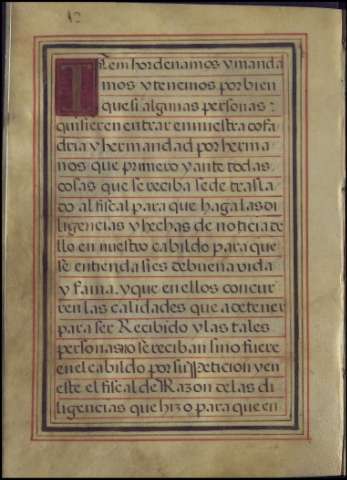 12
Item hordenamos y manda
mos y tenemos por bien
que si algunas personas
quisieren entrar en nuestra cofa
dria y hermandad por herma
nos que primero y ante todas
cosas que se reciba se de trasla
do al fiscal para que haga las di
ligencias y hechas de noticia de
llo en nuestro cabildo para que
se entienda si es de buena vida
y fama. y que en ellos concur
ren las calidades que a de tener
para ser Recibido y las tales
personas no se reciban sino fuere
en el cabildo por su Peticion y en
este el fiscal de Razon de las di
ligencias que hizo para que en